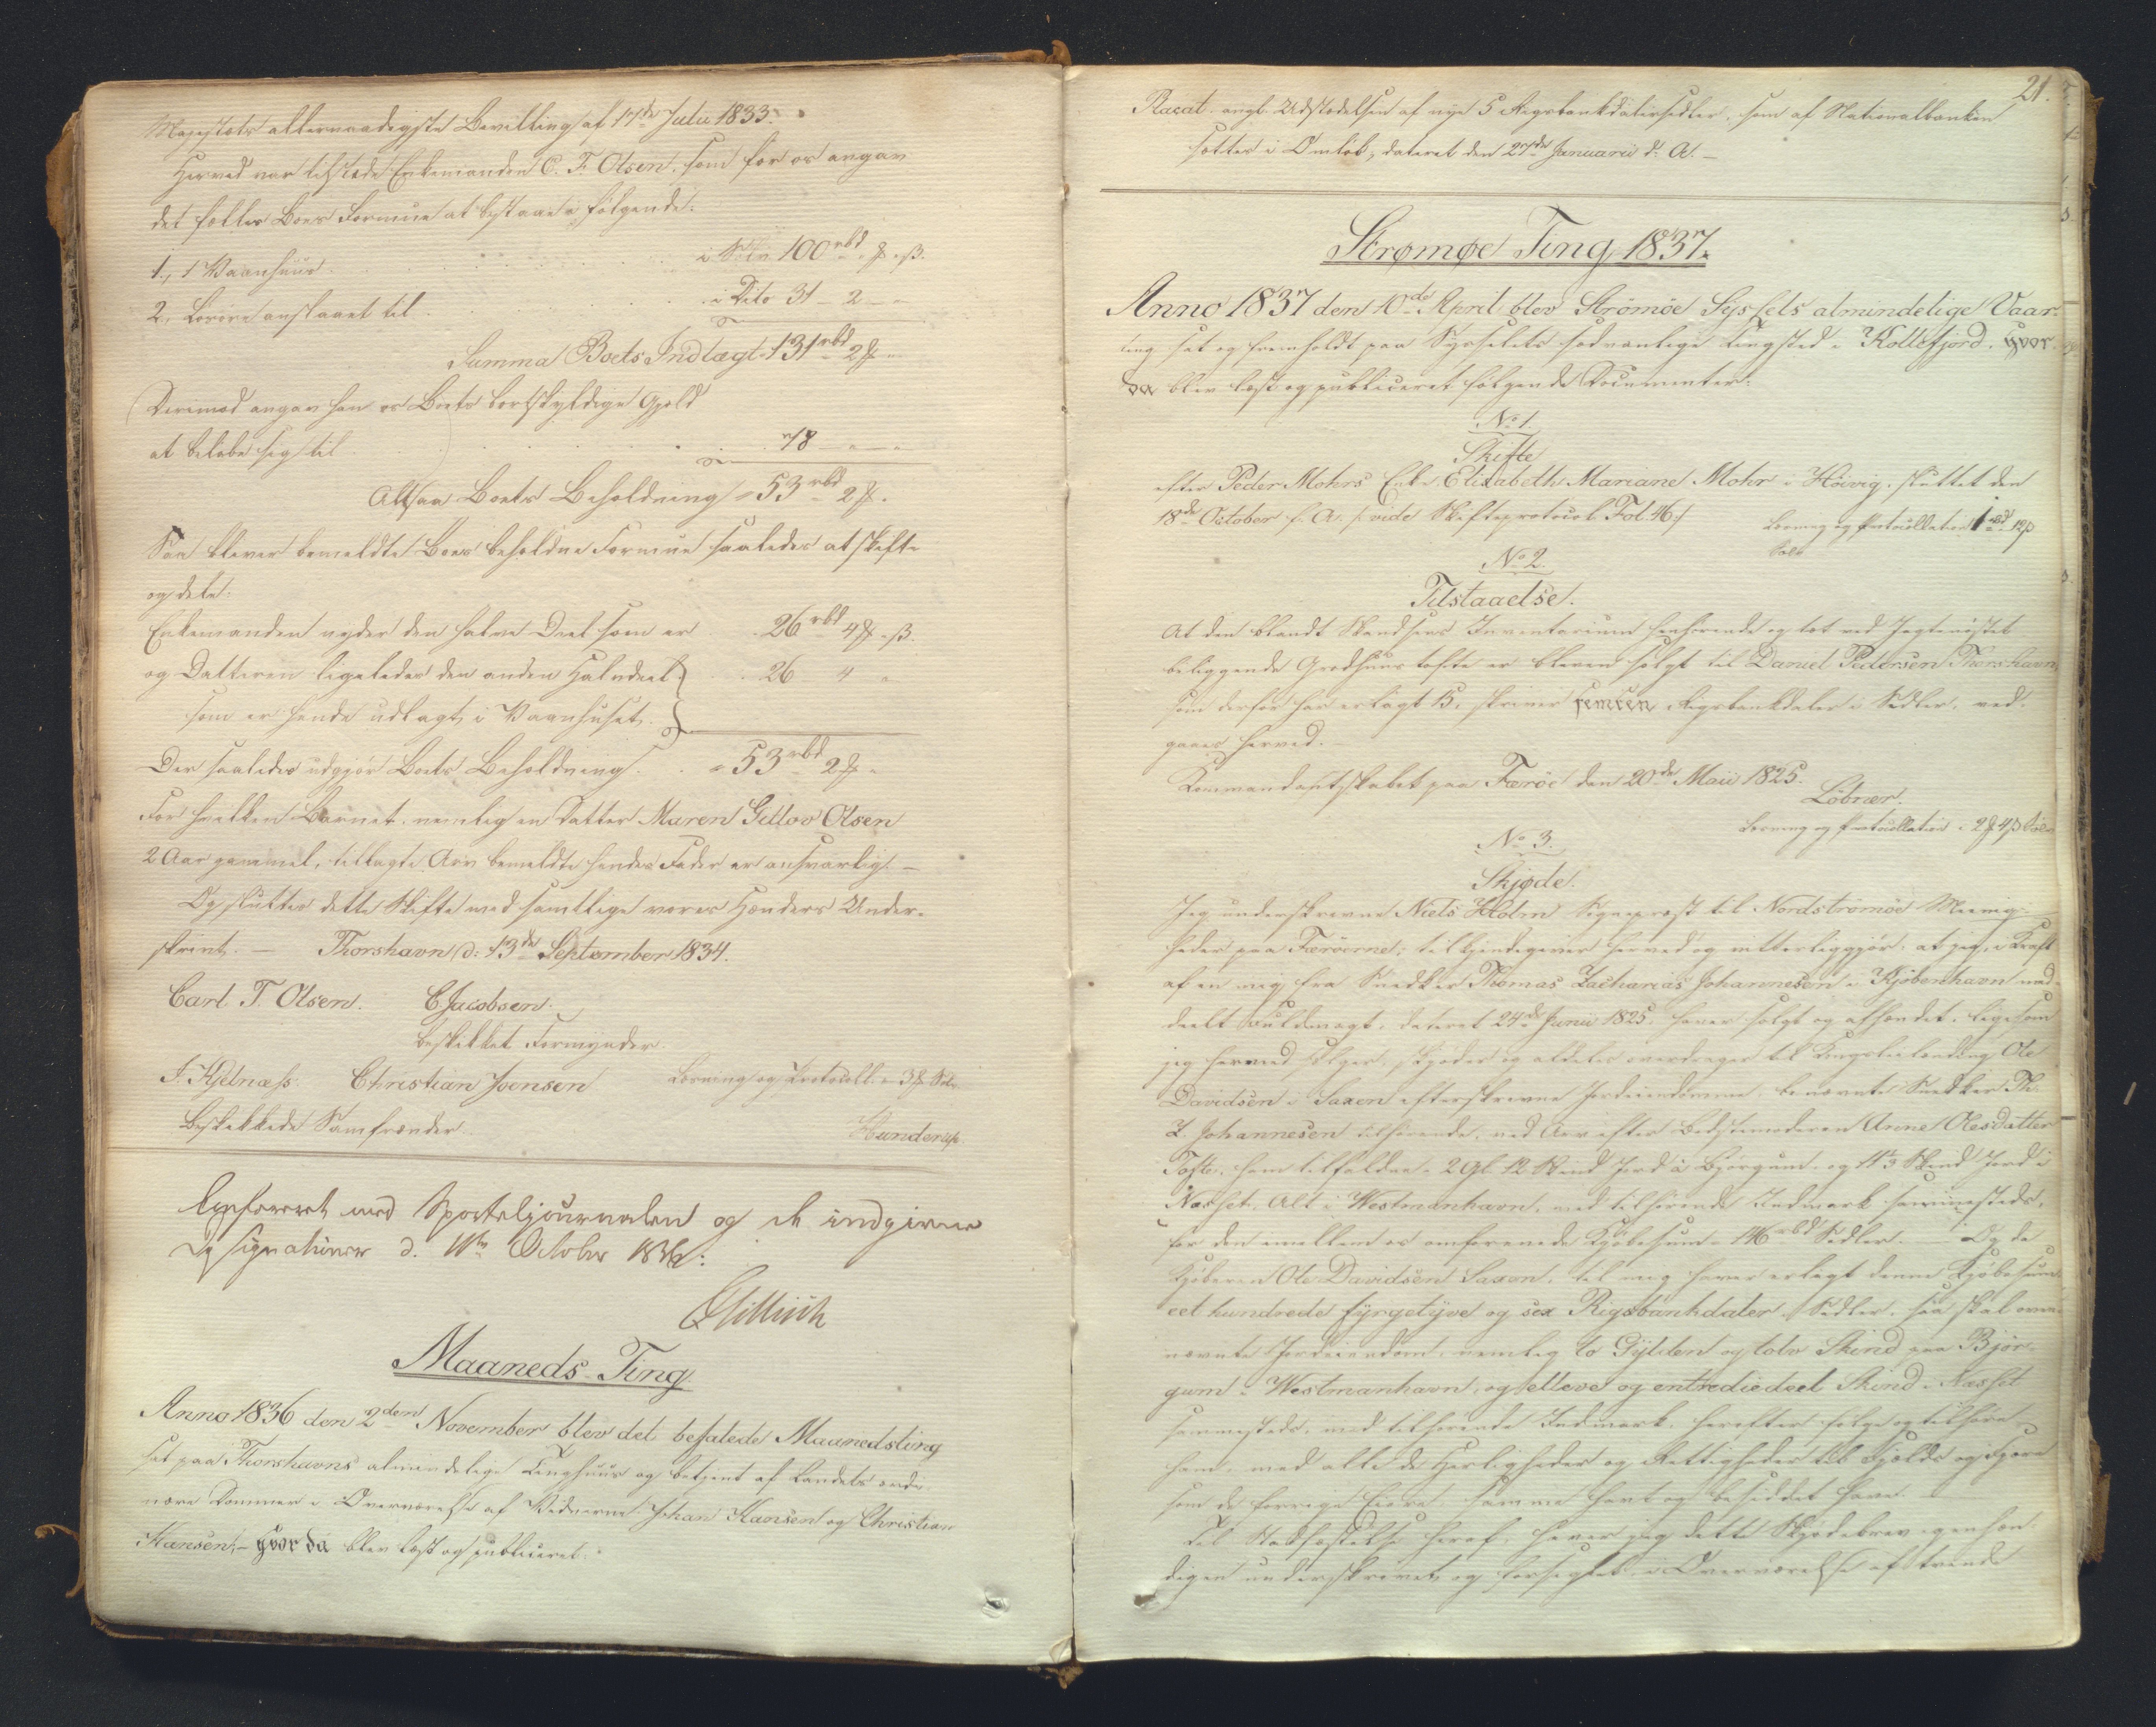 Majestæts allernaadigste Bevilling af 17de Julii 1833.
Herved var tilstede Enkemanden C. F. Olsen, som for os angav
det fælles Boes Formue at bestaae i følgende:
1., 1 Vaanhuus i Sølv 100 rbd „ ꝟ „ ß.
2, Løsøre anslaaet til i Dito 31 – 2 – „
Summa Boets Indtægt 131 rbd 2 ꝟ „
Derimod angav han os Boets bortskyldige Gjæld
at beløbe sig til 78 – „ – „
Altsaa Boets Beholdning = 53 rbd 2 ꝟ.
Saa bliver bemeldte Boes beholdne Formue saaledes at skifte
og dele:
Enkemanden nyder den halve Deel som er 26 rbd 4 ꝟ „ ß.
og Datteren ligeledes den anden Halvdeel 26 4 „
som er hende udlagt i Vaanhuset.
Der saaledes udgjør Boets Beholdning = 53 rbd 2 ꝟ „
For hvilken Barnet, nemlig en Datter Maren Gillov Olsen
2 Aar gammel, tillagte Arv bemeldte hendes Fader er ansvarlig. –
Og sluttes dette Skifte med samtlige vores Hænders Under-
skrivt. – Thorshavn d: 13de September 1834.
Carl F. Olsen. C Jacobsen.
beskikket Formynder.
J. Hjelnæss Christian Joensen Læsning og Protocoll. = 3 ꝟ Sølv
Beskikkede Samfrænder. Hunderup.
Confereret med Sporteljournalen og de indgivne
Designationer d. 11te October 1836:
Tillisch
Maaneds-Ting
Anno 1836 den 2den November blev det befalede Maanedsting
sat paa Thorshavns almindelige Tinghuus og betjent af Landets ordi-
nære Dommer i Overværelse af Vidnerne Johan Hansen og Christian
Hansen, – hvor da blev læst og publiceret:
21.
Placat angl. Udstædelsen af nye 5 Rigsbankdalersedler, som af Nationalbanken
sættes i Omløb, dateret den 27de Januarii d: A. –
Strømøe Ting 1837.
Anno 1837 den 10de April blev Strömöe Syssels almindelige Vaar-
ting sat og fremholdt paa Sysselets sædvanlige Tingsted i Kollefjord, hvor
da blev læst og publiceret følgende Documenter:
No 1.
Skifte
efter Peder Mohrs Enke Elisabeth Mariane Mohr i Höivig, sluttet den
18de October f. A. /: vide Skifteprotocol Fol. 46 :/ Læsning og Protocollation 1 rbd 12 ß
Sølv
No 2.
Tilstaaelse.
At den blandt Skandsens Inventarium henhørende og tæt ved
beliggende Grødhuus tofte er bleven solgt til Daniel Pedersen Thorshavn,
som derfor har erlagt 15, skriver femten Rigsbankdaler i Sedler, ved-
gaaes herved. –
Kommandantskabet paa Færöe den 20de Maii 1825.
Löbner.
Læsning og Protocollation = 2 ꝟ 4 ß Sølv
No 3.
Skjøde.
Jeg underskrevne Niels Holm Sognepræst til Nordströmöe Meenig-
heder paa Færöerne; tilkjendegiver herved og vitterliggjør: at jeg, i Kraft
af en mig fra Snedker Thomas Zacharias Johannesen i Kjöbenhavn med-
deelt Fuldmagt, dateret 24de Junii 1825, haver solgt og afhændet, ligesom
jeg hermed sælger, skjøder og aldeles overdrager til Ole
Davidsen i Saxen efterskrevne Jordeiendomme, benævnte Snedker Th:
Z. Johannesen tilhørende, ved Arv efter Bedstemoderen Anne Olesdatter
Tofte, ham tilfalden = 2 Gl. 12 Skind Jord á Bjørgum, og 11⅓ Skind Jord i
Næsset, Alt i Westmanhavn, med tilhørende Indmark sammesteds,
for den imellem os omforenede Kjøbesum = 146 rbd Sedler. – Og da
Kjøberen Ole Davidsen Saxen, til mig haver erlagt denne Kjøbesum
eet hundrede fyrgetyve og sex Rigsbankdaler i Sedler, saa skal oven-
nævnte Jordeiendom, nemlig to Gylden og tolv Skind paa Björ-
gum i Westmanhavn, og elleve og entrediedeel Skind i Næsset
sammesteds, med tilhørende Indmark, herefter følge og tilhøre
ham, med alle de Herligheder og Rettigheder til Fjelds og Fjære
som de forrige Eiere samme havt og besiddet have. –
Til Stadfæstelse heraf, haver jeg dette Skjødebrev egenhæn-
digen underskrevet og forseglet i Overværelse af trende